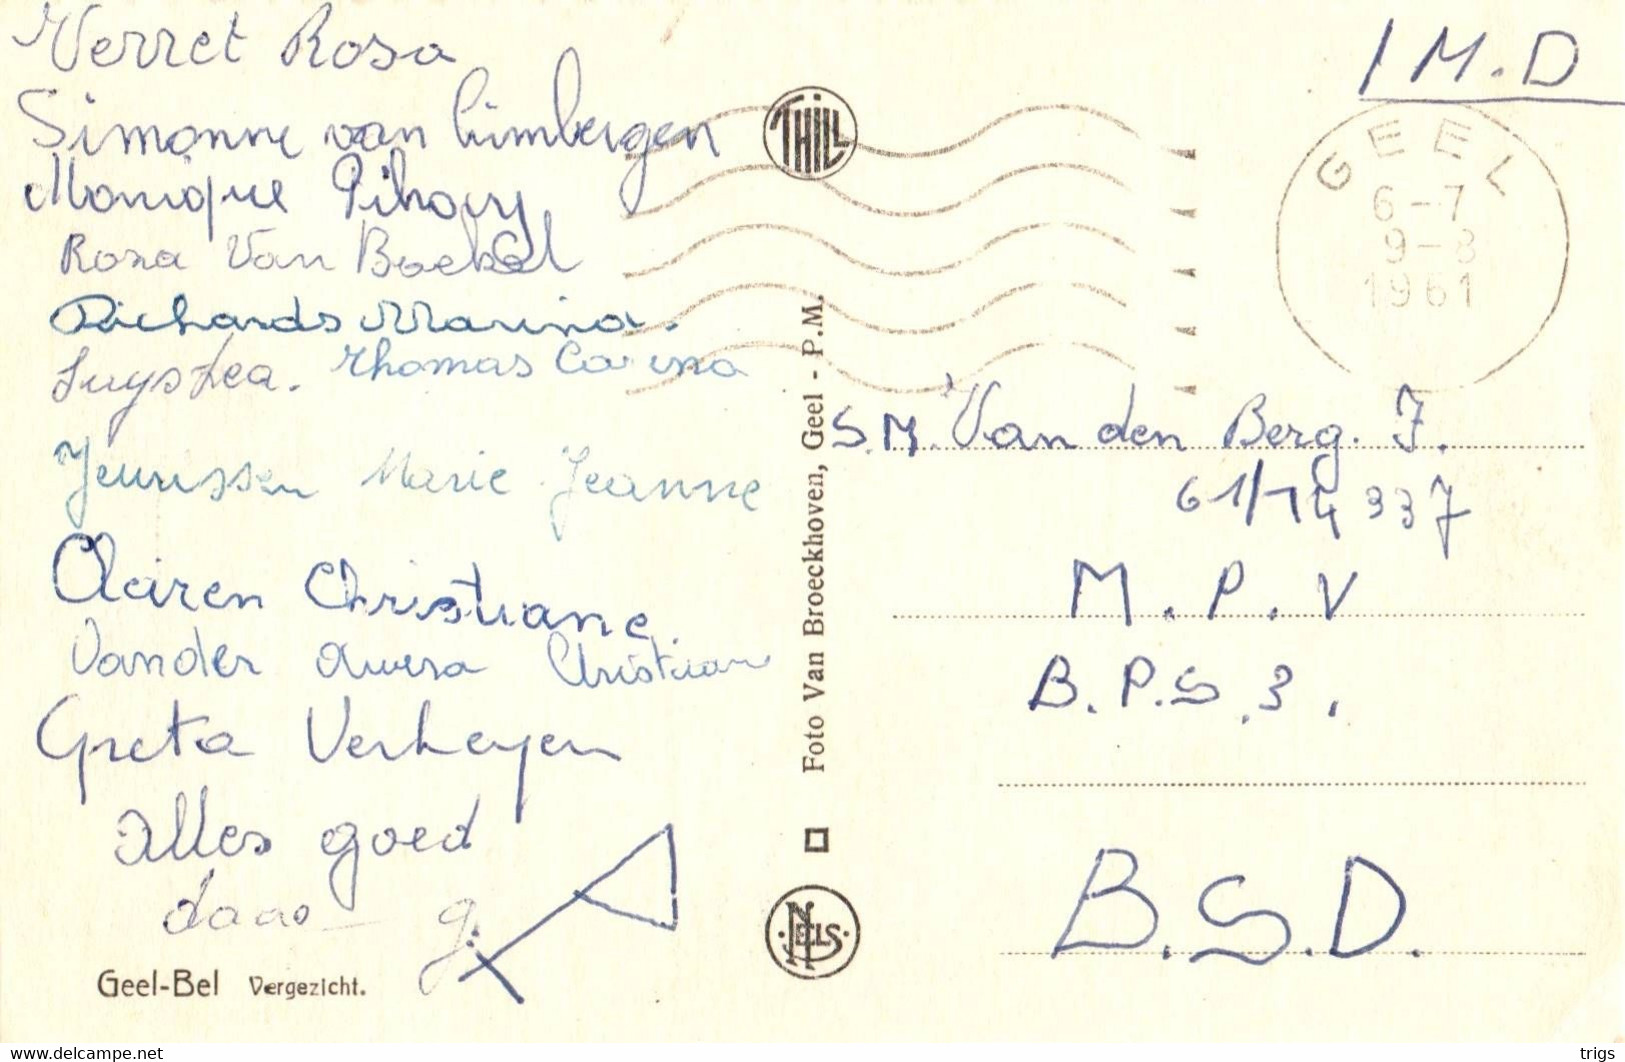 Verret Rosa
Simonne van Limbergen
Monique
Rosa Van Boekel
Richards Marina.
Luys Lea. Thomas Carina
Jeurissen Marie Jeanne
Clairen Christiane
Vander Christiane
Greta Verheyen
alles goed
daag
Geel-Bel Vergezicht.
THILL
Foto Van Broeckhoven, Geel - P.M.
NELS
I M.D
GEEL
6-7
9-8
1961
S.M. Van den Berg. J.
61/14337
M.P.V
B.P.S.3.
B.S.D.
www.delcampe.net
trigs